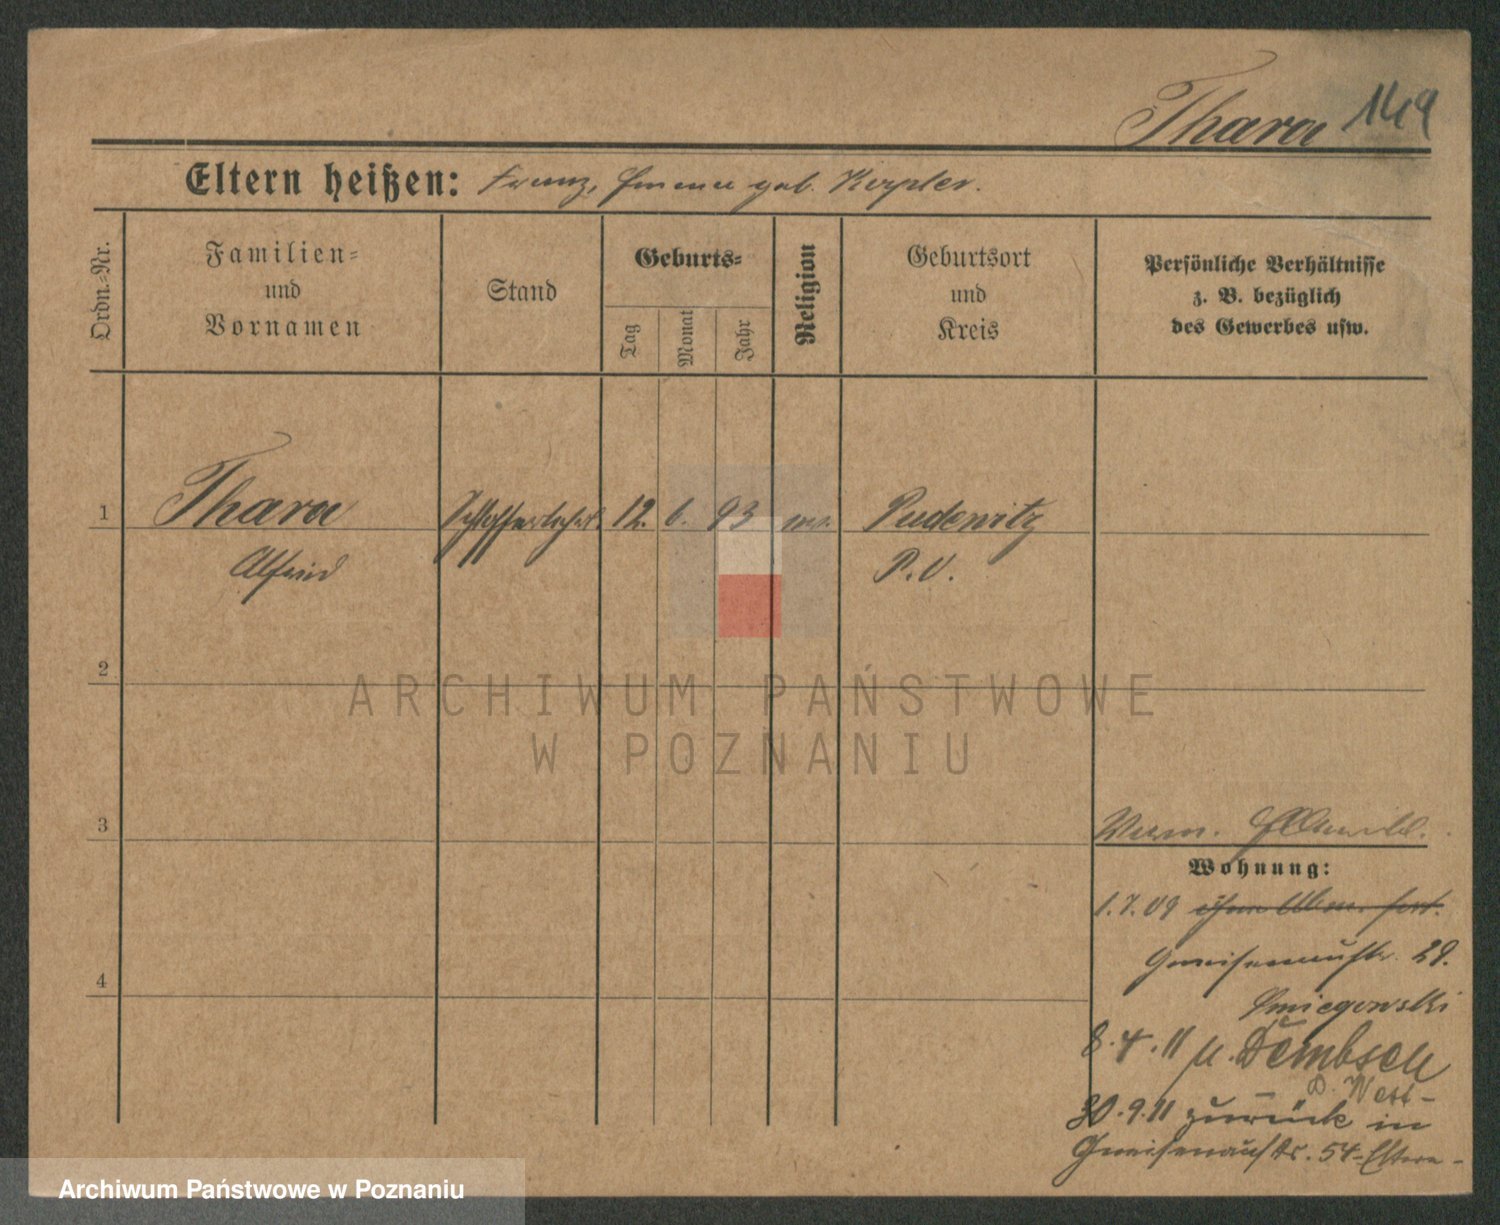 Thara 149
Eltern heißen: Franz, Emma geb. Kepler.
Ordn.-Nr.
Familien-
und
Vornamen
Stand
Geburts-
Tag
Monat
Jahr
Religion
Geburtsort
und
Kreis
Persönliche Verhältnisse
z. B. bezüglich
des Gewerbes usw.
1 Thara Schlosserlehrl. 12. 6. 93 Pudewitz
Alfred P. O.
2
ARCHIWUM PAŃSTWOWE
W POZNANIU
3
Wohnung:
1.7.09
Gneisenaustr. 29.
4
Smiegowski
8.4.11 n. Dembsen
P. West-
30.9.11 zurück in
Gneisenaustr. 54 - Eltern -
Archiwum Państwowe w Poznaniu